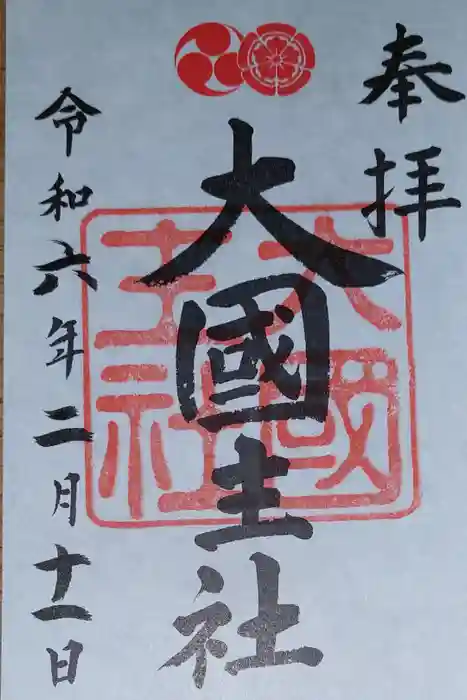 奉拝
大國主社
大國主社
令和六年二月十一日